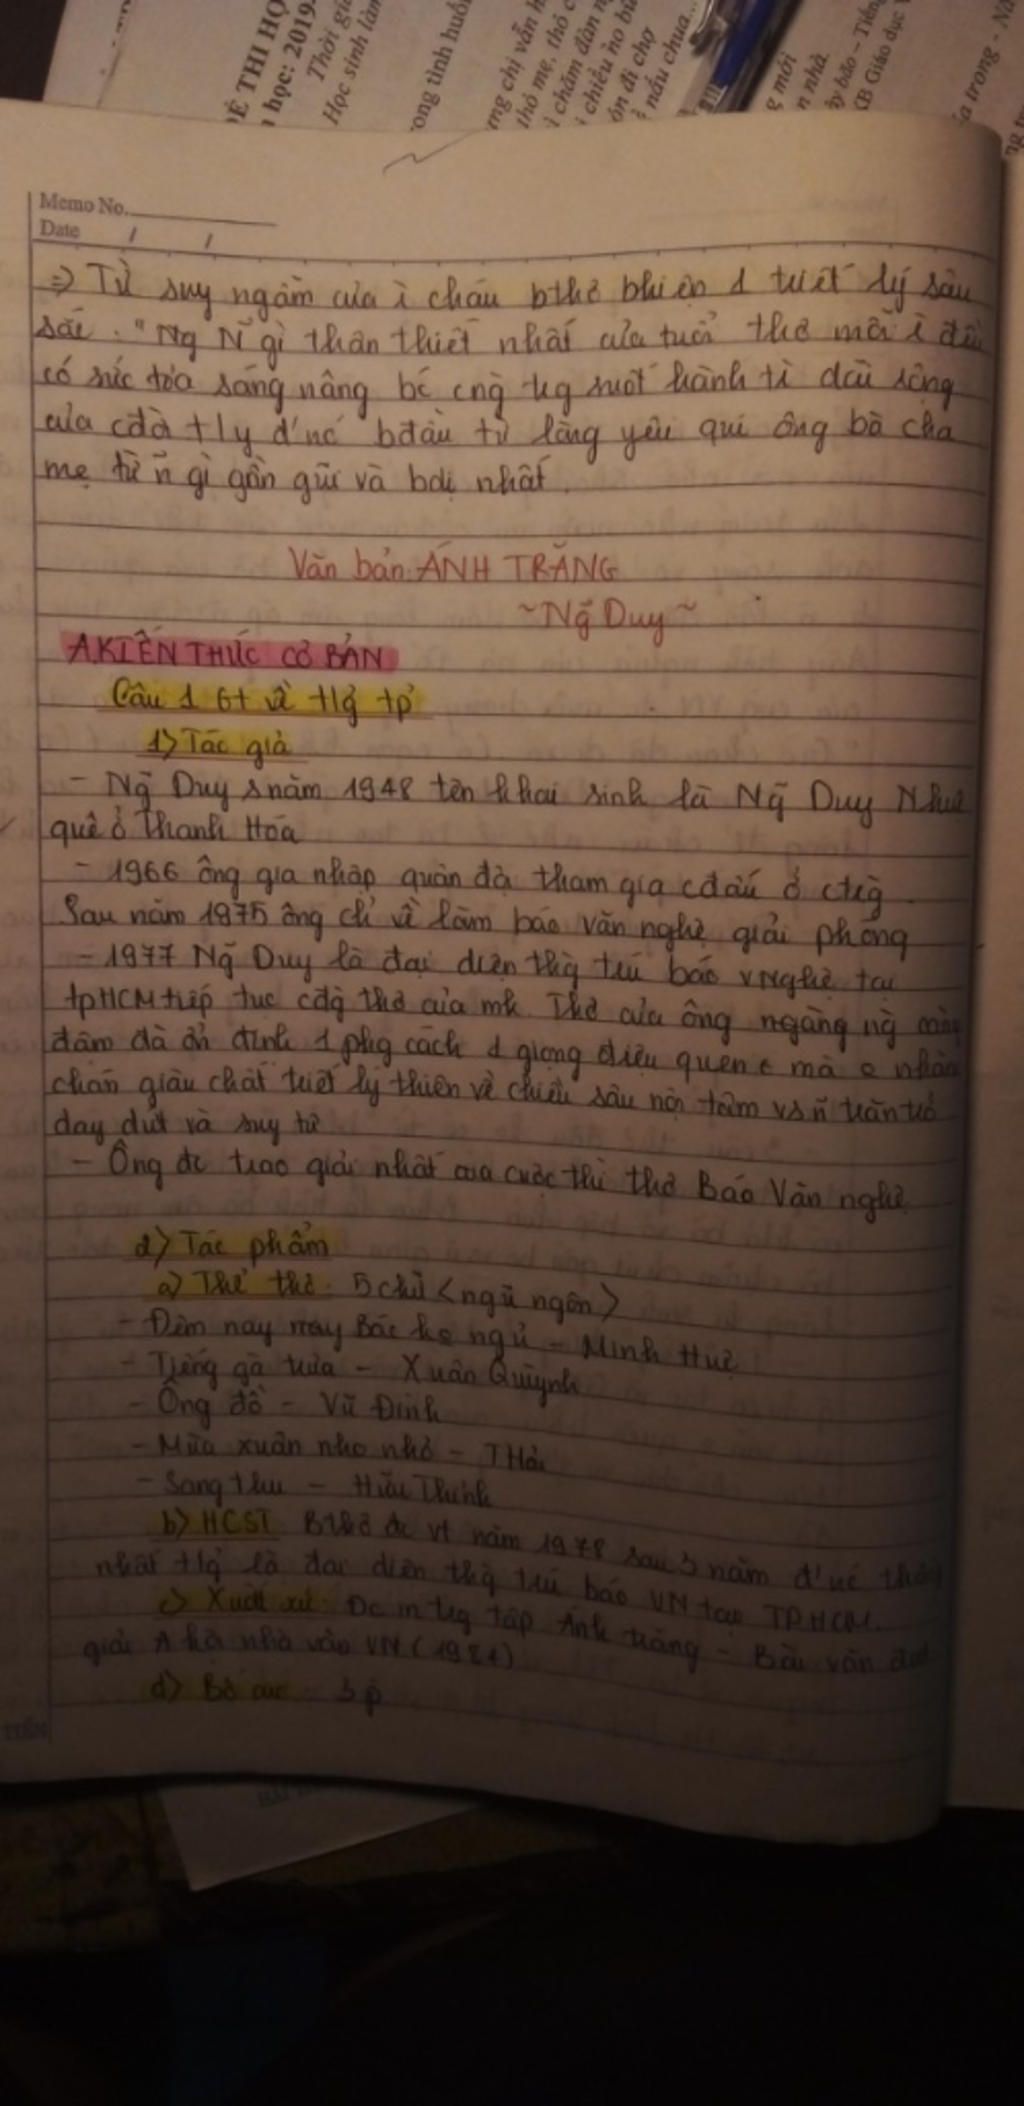 ĐỀ THI HỌ
học: 2019
Thời gi
Học sinh làm
ong tình huố
thỏ mẹ, thỏ c
i chiều nọ bù
ón đi chợ
nấu chua...
g mới
n nhà.
ây bão – Tiếng
KB Giáo dục
a trong - Nă
Memo No.
Date / /
=> Từ suy ngẫm của ì cháu bthơ bhiện 1 triết lý sâu
sắc: "Ng N̄ gì thân thiết nhất của tuổi thơ mỗi ì đều
có sức tỏa sáng nâng bć cng̀ trg suốt hành tì dài rộng
của cđờ tly đ'nć bđầu từ lòng yêu quí ông bà cha
mẹ từ n̄ gì gần gũi và bdị nhất.
Văn bản: ÁNH TRĂNG
~Ng̃ Duy~
A.KIẾN THỨC CƠ BẢN
Câu 1 Gt về tlg̉ tp̉
1> Tác giả
- Ng̃ Duy snăm 1948 tên khai sinh là Ng̃ Duy Nhuệ
quê ở Thanh Hóa
- 1966 ông gia nhập quân đội tham gia cđấu ở ctrg̀
Sau năm 1975 ông ch̉ về làm báo văn nghệ giải phóng
- 1977 Ng̃ Duy là đại diện thg̀ trú báo vNghệ tại
tpHCM tiếp tục cđg̀ thơ của mk. Thơ của ông ngàng ng̀ càng
đậm đà ổn định 1 phg cách 1 giọng điệu quen t mà o nhàm
chán giàu chất triết lý thiên về chiều sâu nội tâm vs n̄ trăn trở
day dứt và suy tư
- Ông đc trao giải nhất của cuộc thi thơ Báo Văn nghệ
2> Tác phẩm
a> Thể thơ: 5 chữ <ngũ ngôn>
- Đêm nay may Bác ko ngủ - Minh Huệ
- Tiếng gà trưa - Xuân Quỳnh
- Ông đồ - Vũ Đình
- Mùa xuân nho nhỏ - THải
- Sang thu - Hữu Thỉnh
b> HCST: Bthơ đc vt năm 1978 sau 3 năm đ'nć thống
nhất tlg̉ là đại diện thg̀ trú báo VN tại TPHCM.
c> Xuất xứ: Đc in trg tập Ánh trăng - Bài văn đạt
giải A hội nhà văn VN (1984)
d) Bố cục: 3 p